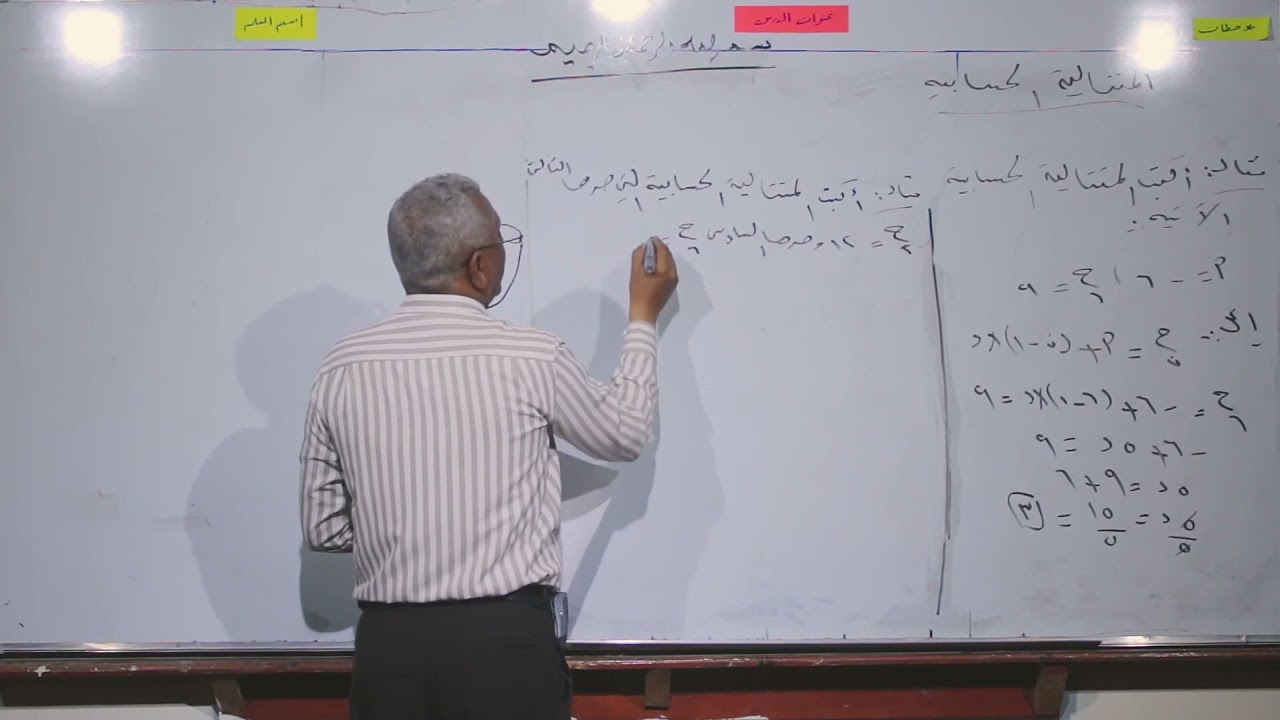 ملاحظات
عنوان الدرس
اسم المعلم
بسم الله الرحمن الرحيم
المتتالية الحسابية
مثال: أكتب المتتالية الحسابية
الآتية:
أ = - ٦ ، ح٦ = ٩
الحل:
ح‌ن = أ + (ن - ١) × د
ح٦ = - ٦ + (٦ - ١) × د = ٩
- ٦ + ٥د = ٩
٥د = ٩ + ٦
٥د/٥ = ١٥/٥ = ٣
مثال: أكتب المتتالية الحسابية التي حدها الثالث
ح٣ = ١٢ وحدها السادس ح٦ =